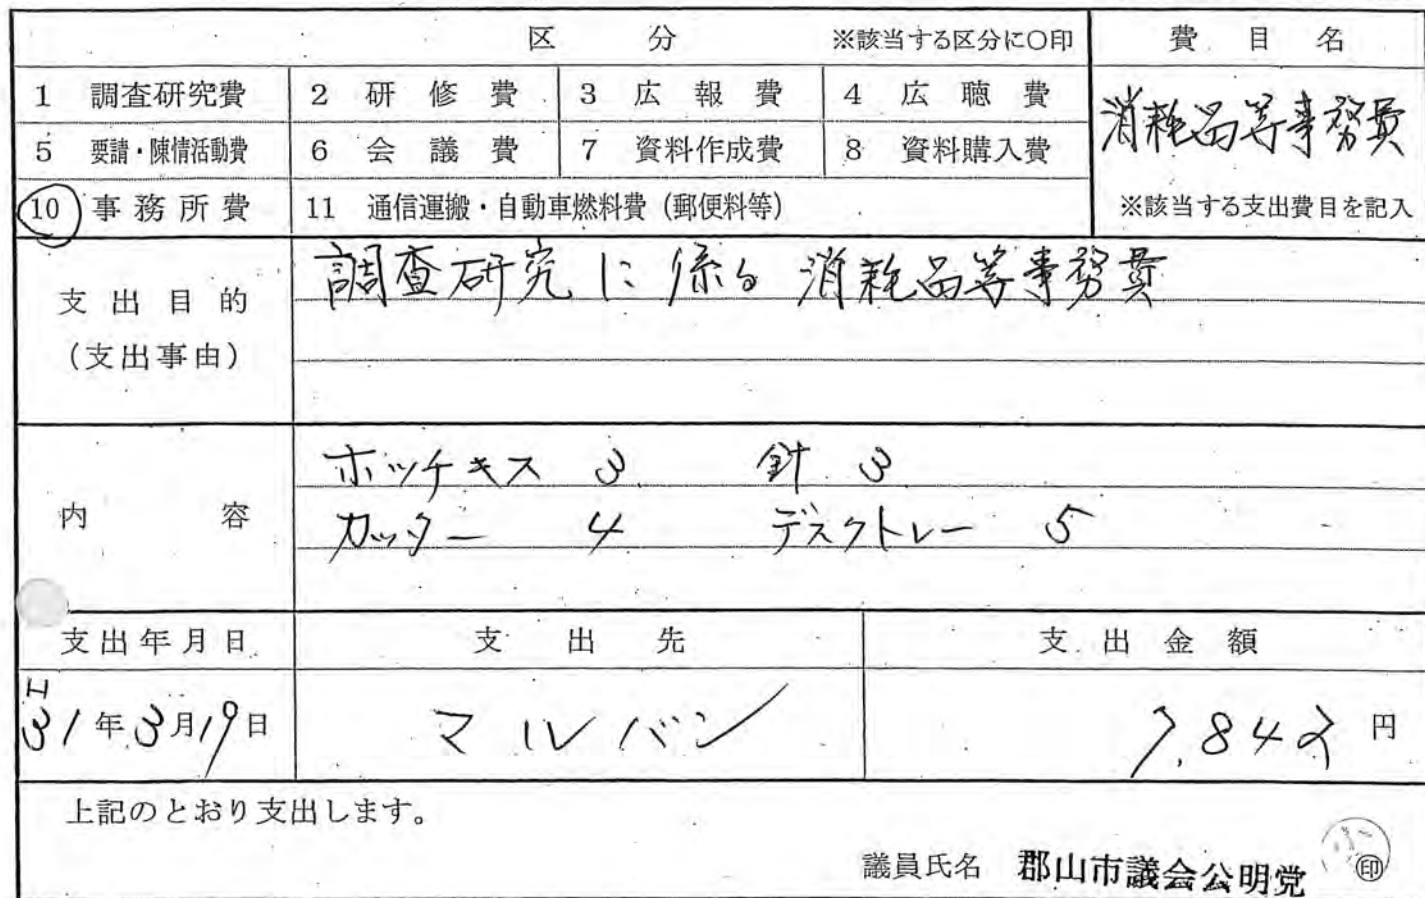 区 分 ※該当する区分に〇印 費目名
1 調査研究費 2 研修費 3 広報費 4 広聴費
消耗品等事務費
5 要請・陳情活動費 6 会議費 7 資料作成費 8 資料購入費
10 事務所費 11 通信運搬・自動車燃料費(郵便料等) ※該当する支出費目を記入
調査研究に係る消耗品等事務費
支出目的
(支出事由)
ホッチキス 3 針 3
内容
カッター 4 デスクトレー 5
支出年月日 支出先 支出金額
H31年3月19日 マルバン 7,842円
上記のとおり支出します。
議員氏名 郡山市議会公明党 ㊞